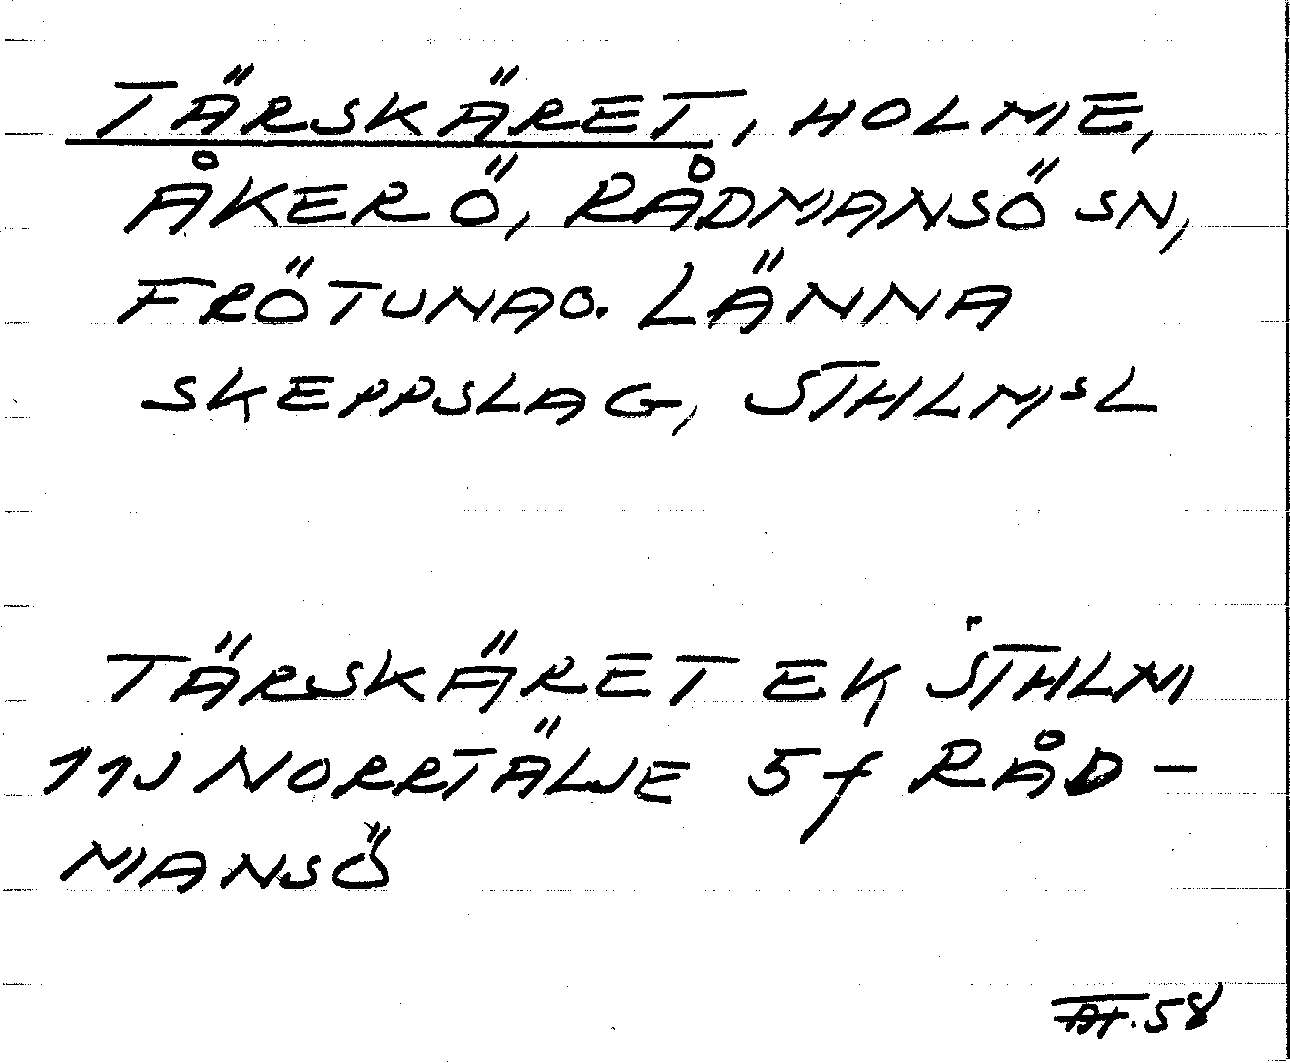 TÄRSKÄRET, HOLME,
ÅKERÖ, RÅDMANSÖ SN,
FRÖTUNA O. LÄNNA
SKEPPSLAG, STHLMSL
TÄRSKÄRET EK STHLM
11J NORRTÄLJE 5f RÅD-
MANSÖ
58